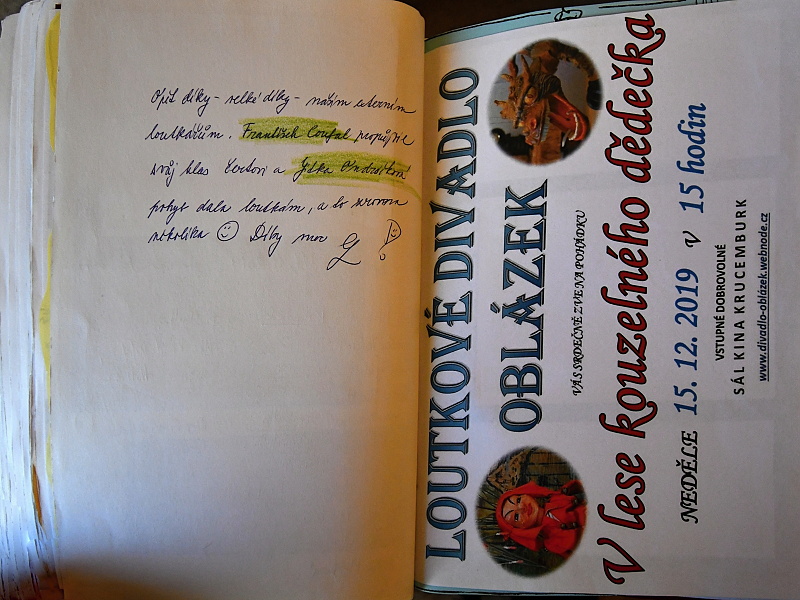 Opět díky - velké díky - našim externím
loutkářům. František Loufal propůjčil
svůj hlas čertovi a Jitka Ondráčková
pohyb dala loutkám, a to zrovna
několika ☺ Díky moc
LOUTKOVÉ DIVADLO
OBLÁZEK
VÁS SRDEČNĚ ZVE NA POHÁDKU
V lese kouzelného dědečka
NEDĚLE 15. 12. 2019 v 15 hodin
VSTUPNÉ DOBROVOLNÉ
SÁL KINA KRUCEMBURK
www.divadlo-oblázek.webnode.cz